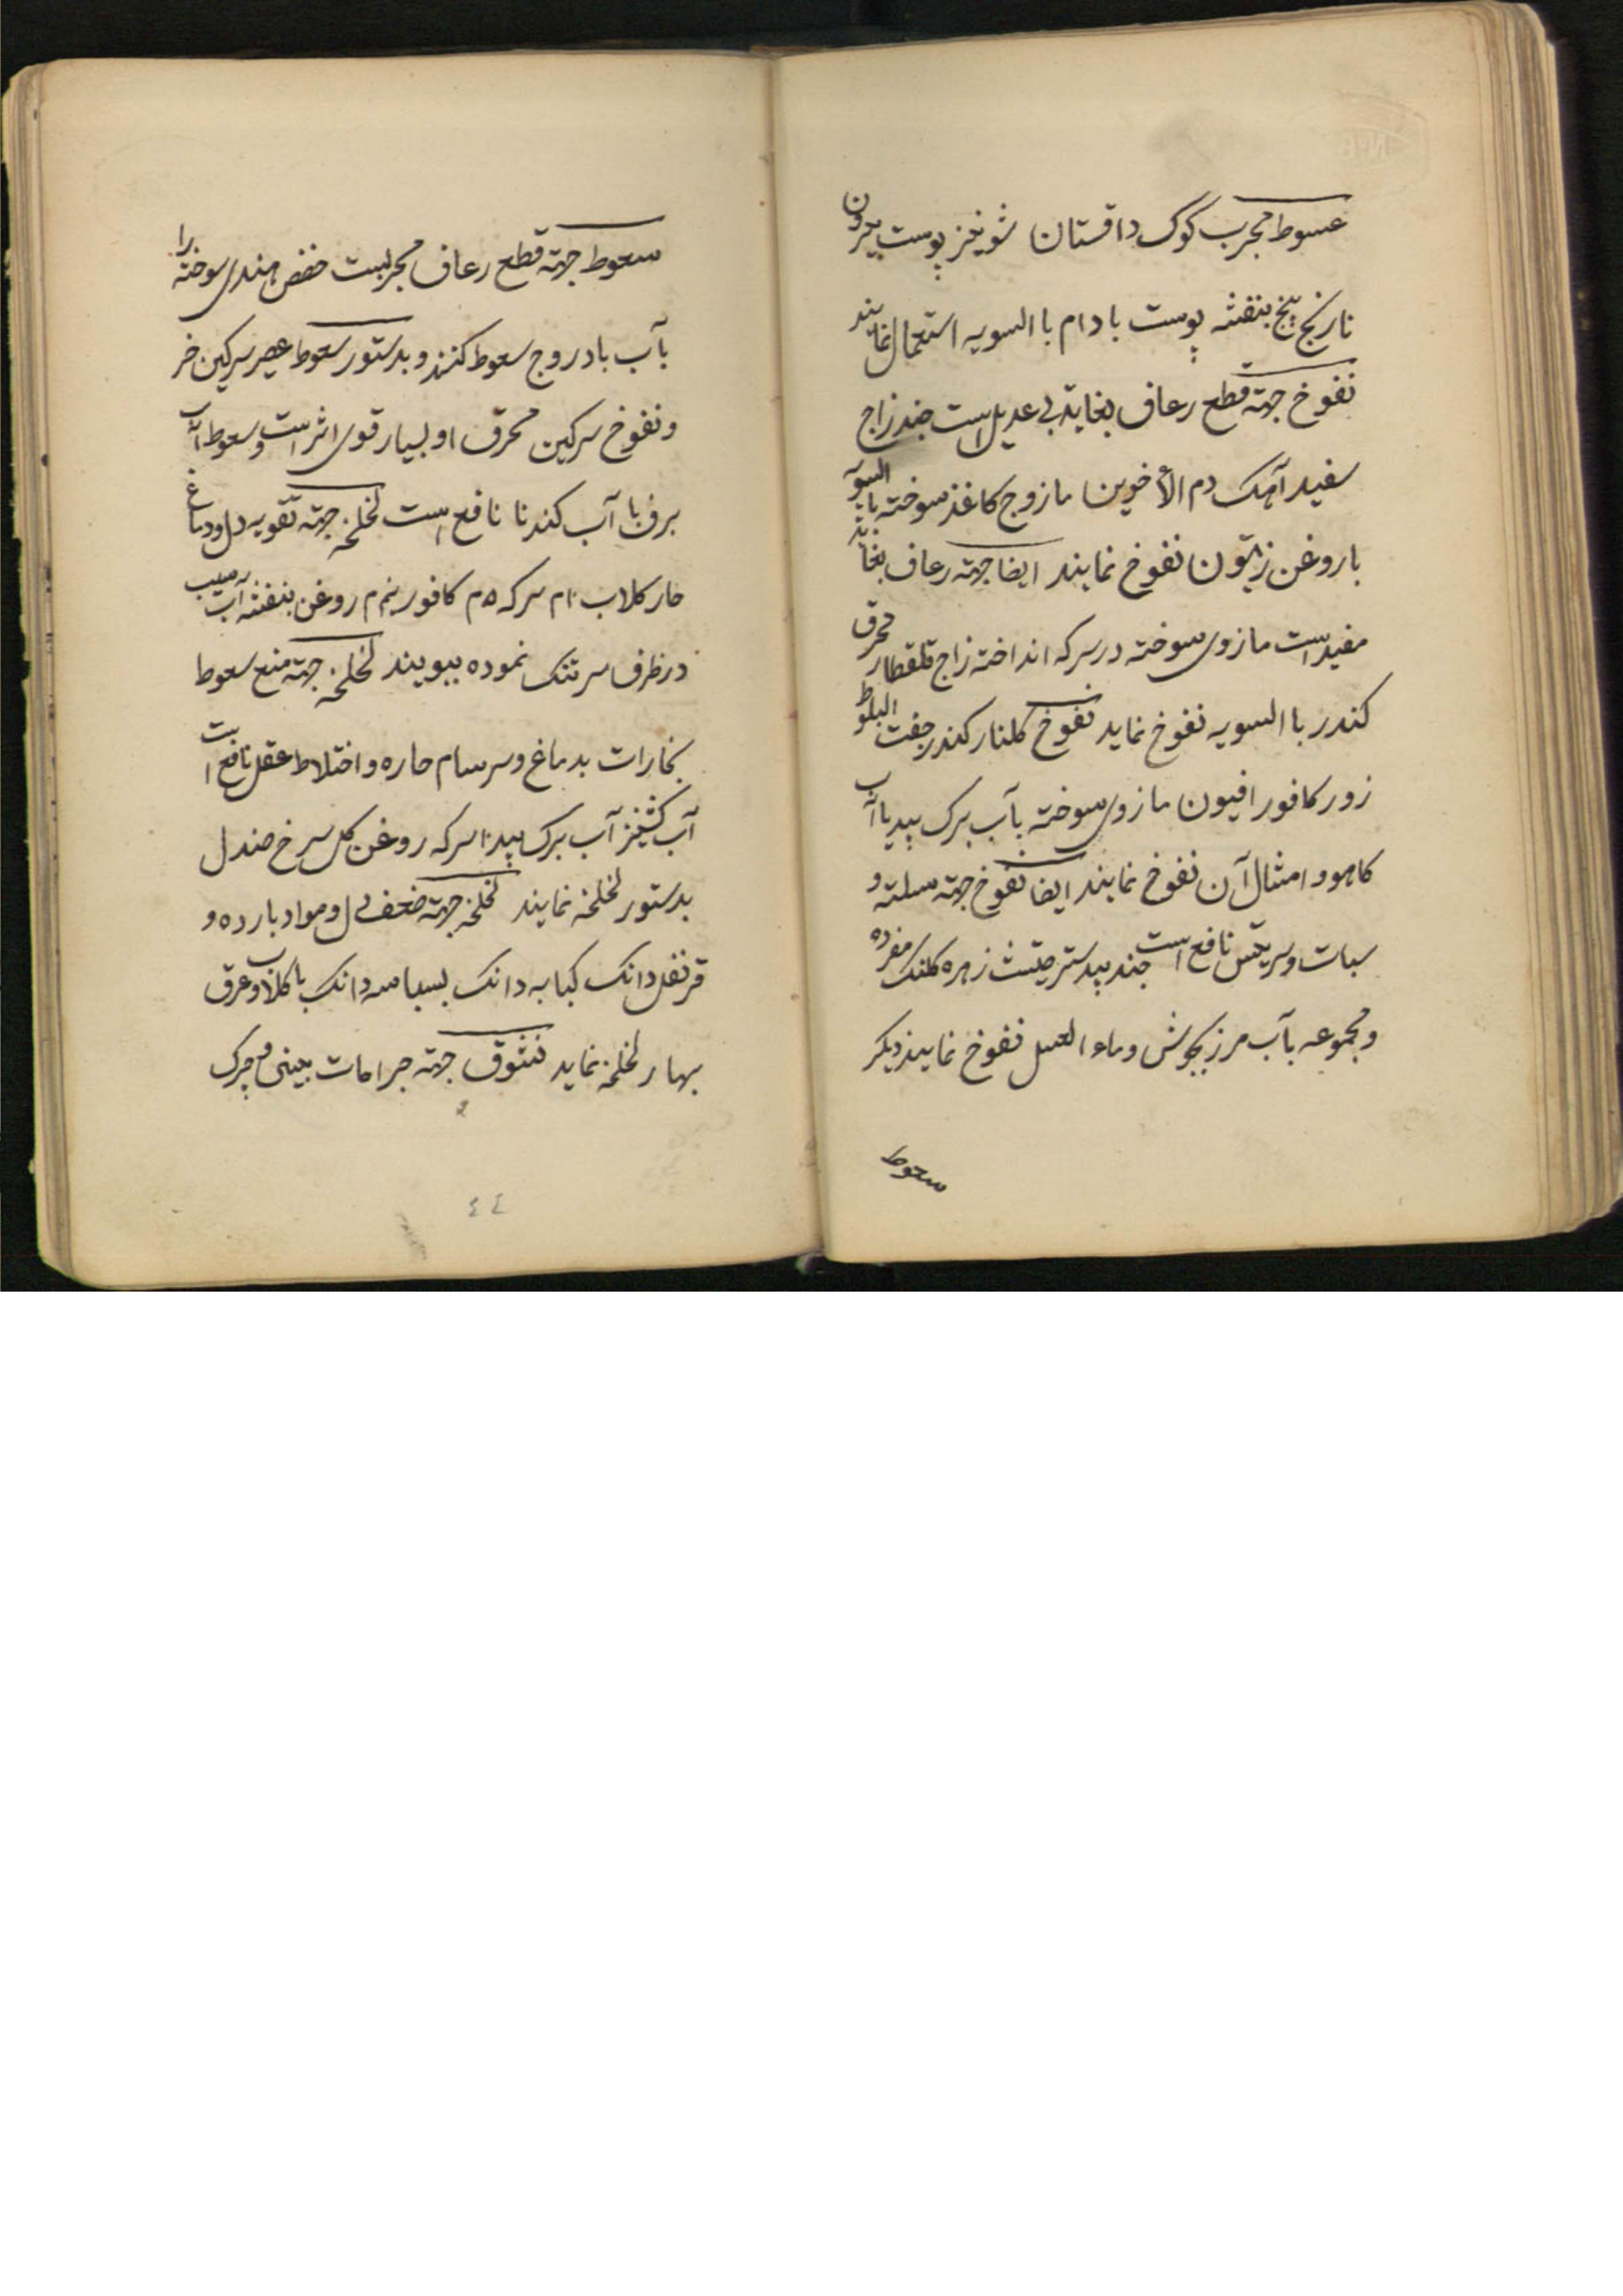 عسوط مجرب کوک داقستان شونیز پوست بیرون
نارنج بیخ بنفشه پوست بادام باالسویه استعمال نمایند
نفوخ جهته قطع رعاف بغایة بی عدیل است جند زاج
سفید آهک دم الأخوین مازوج کاغذ سوخته بالسویه
با روغن زیتون نفوخ نمایند ایضا جهته رعاف بغایة
مفید است مازوی سوخته در سرکه انداخته زاج قلقطار محرق
کندر باالسویه نفوخ نماید نفوخ کلنار کندر جفت البلوط
زور کافور افیون مازوی سوخته بآب برک بید یا آب
کاهو و امثال آن نفوخ نمایند ایضا نفوخ جهته سکته و
سبات و نافع است جند بیدستر زهره کلنک مفرده
و مجموعه بآب مرزنجوش و ماء العسل نفوخ نمایند دیکر
سعوط
سعوط جهته قطع رعاف مجربست حضض هندی سوخته را
بآب بادروج سعوط کنند و بدستور سعوط عصیر سرکین خر
و نفوخ سرکین محرق او بسیار قوی اثر است و سعوط آب
برف با آب کندنا نافع است لخلخه جهته تقویه دل و دماغ
حار کلاب ۱۰م سرکه ۵م کافور نیم م روغن بنفشه آب سیب
در ظرف سر تنک نموده ببویند لخلخه جهته منع سعوط
بخارات بدماغ و سرسام حاره و اختلاط عقل نافع است
آب کشنیز آب برک بید سرکه روغن کل سرخ صندل
بدستور لخلخه نمایند لخلخه جهته ضعف دل و مواد بارده و
قرنفل دانک کبابه دانک بسباسه دانک با کلاب و عرق
بهار لخلخه نماید نشوق جهته جراحات بینی و چرک
٤٤